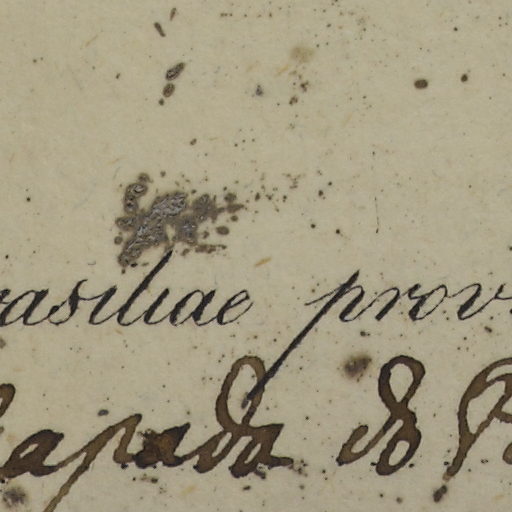 rasiliae prov
hapada do P